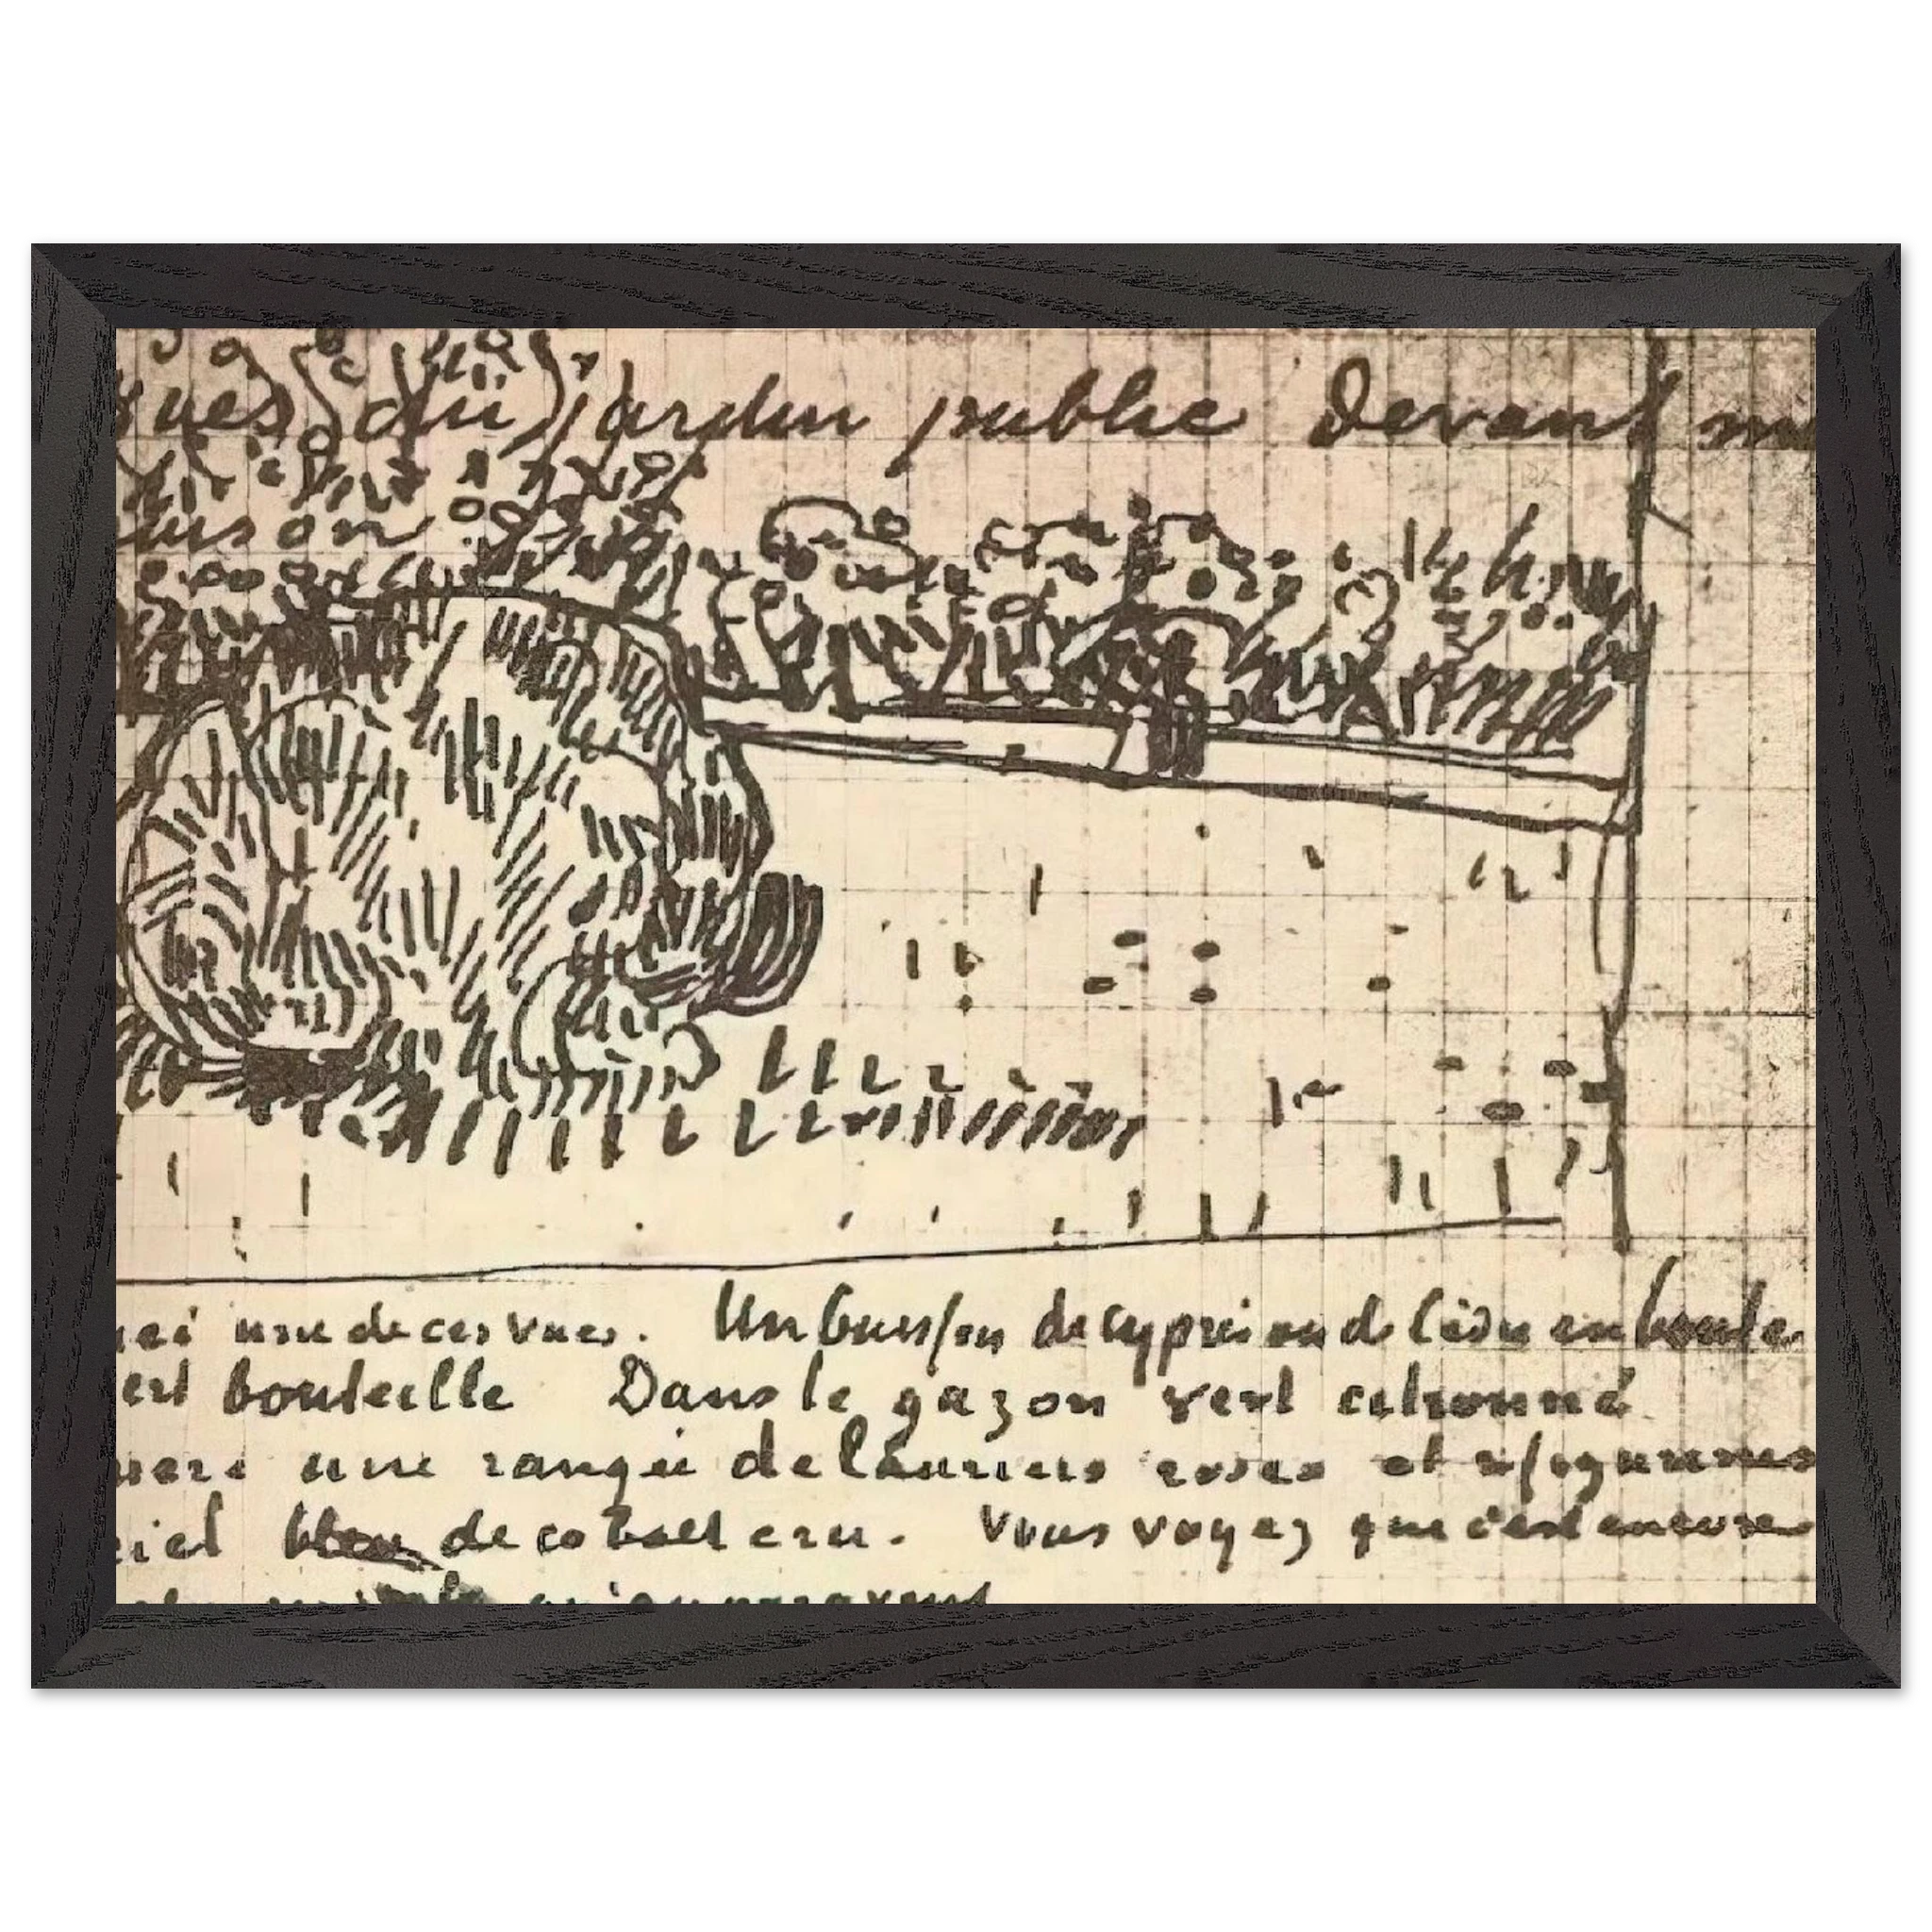 vues du jardin public devant m
aison
ici une de ces vues. Un buisson de cyprès ou de cèdre en boule
ert bouteille Dans le gazon vert citronné
une rangée de lauriers roses et
ciel bleu de cobalt cru. Vous voyez que c'est encore